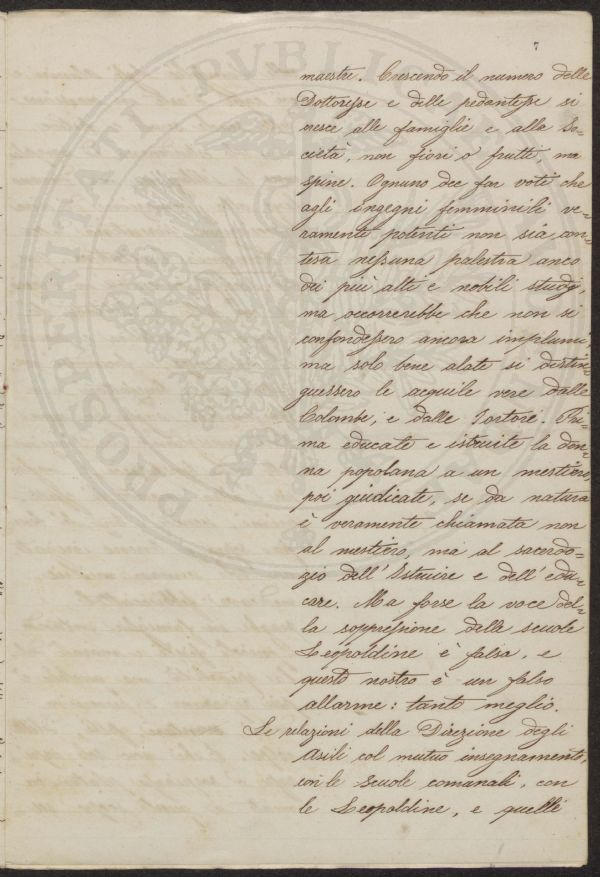 7
maestre. Crescendo il numero delle
Dottoresse e delle pedantesse si
cresce alle famiglie e alla So-
cietà, non fiori o frutti, ma
spine. Ognuno dee far voti che
agli Ingegni femminili ve-
ramente potenti non sia con-
tesa nessuna palestra anco
dei più alti e nobili studj,
ma occorrerebbe che non si
confondessero ancora implumi,
ma solo bene alate si distin-
guessero le acquile vere dalle
Colombe, e dalle Tortore. Pri-
ma educate e istruite la don-
na popolana a un mestiero,
poi giudicate, se da natura
è veramente chiamata non
al mestiero, ma al sacerdo-
zio dell'Istruire e dell'edu-
care. Ma forse la voce del-
la soppressione delle scuole
Leopoldine è falsa, e
questo nostro è un falso
allarme: tanto meglio.
Le relazioni della Direzione degli
Asili col mutuo insegnamento,
con le Scuole comunali, con
le Leopoldine, e quelle
PROSPERITATI PVBLICAE